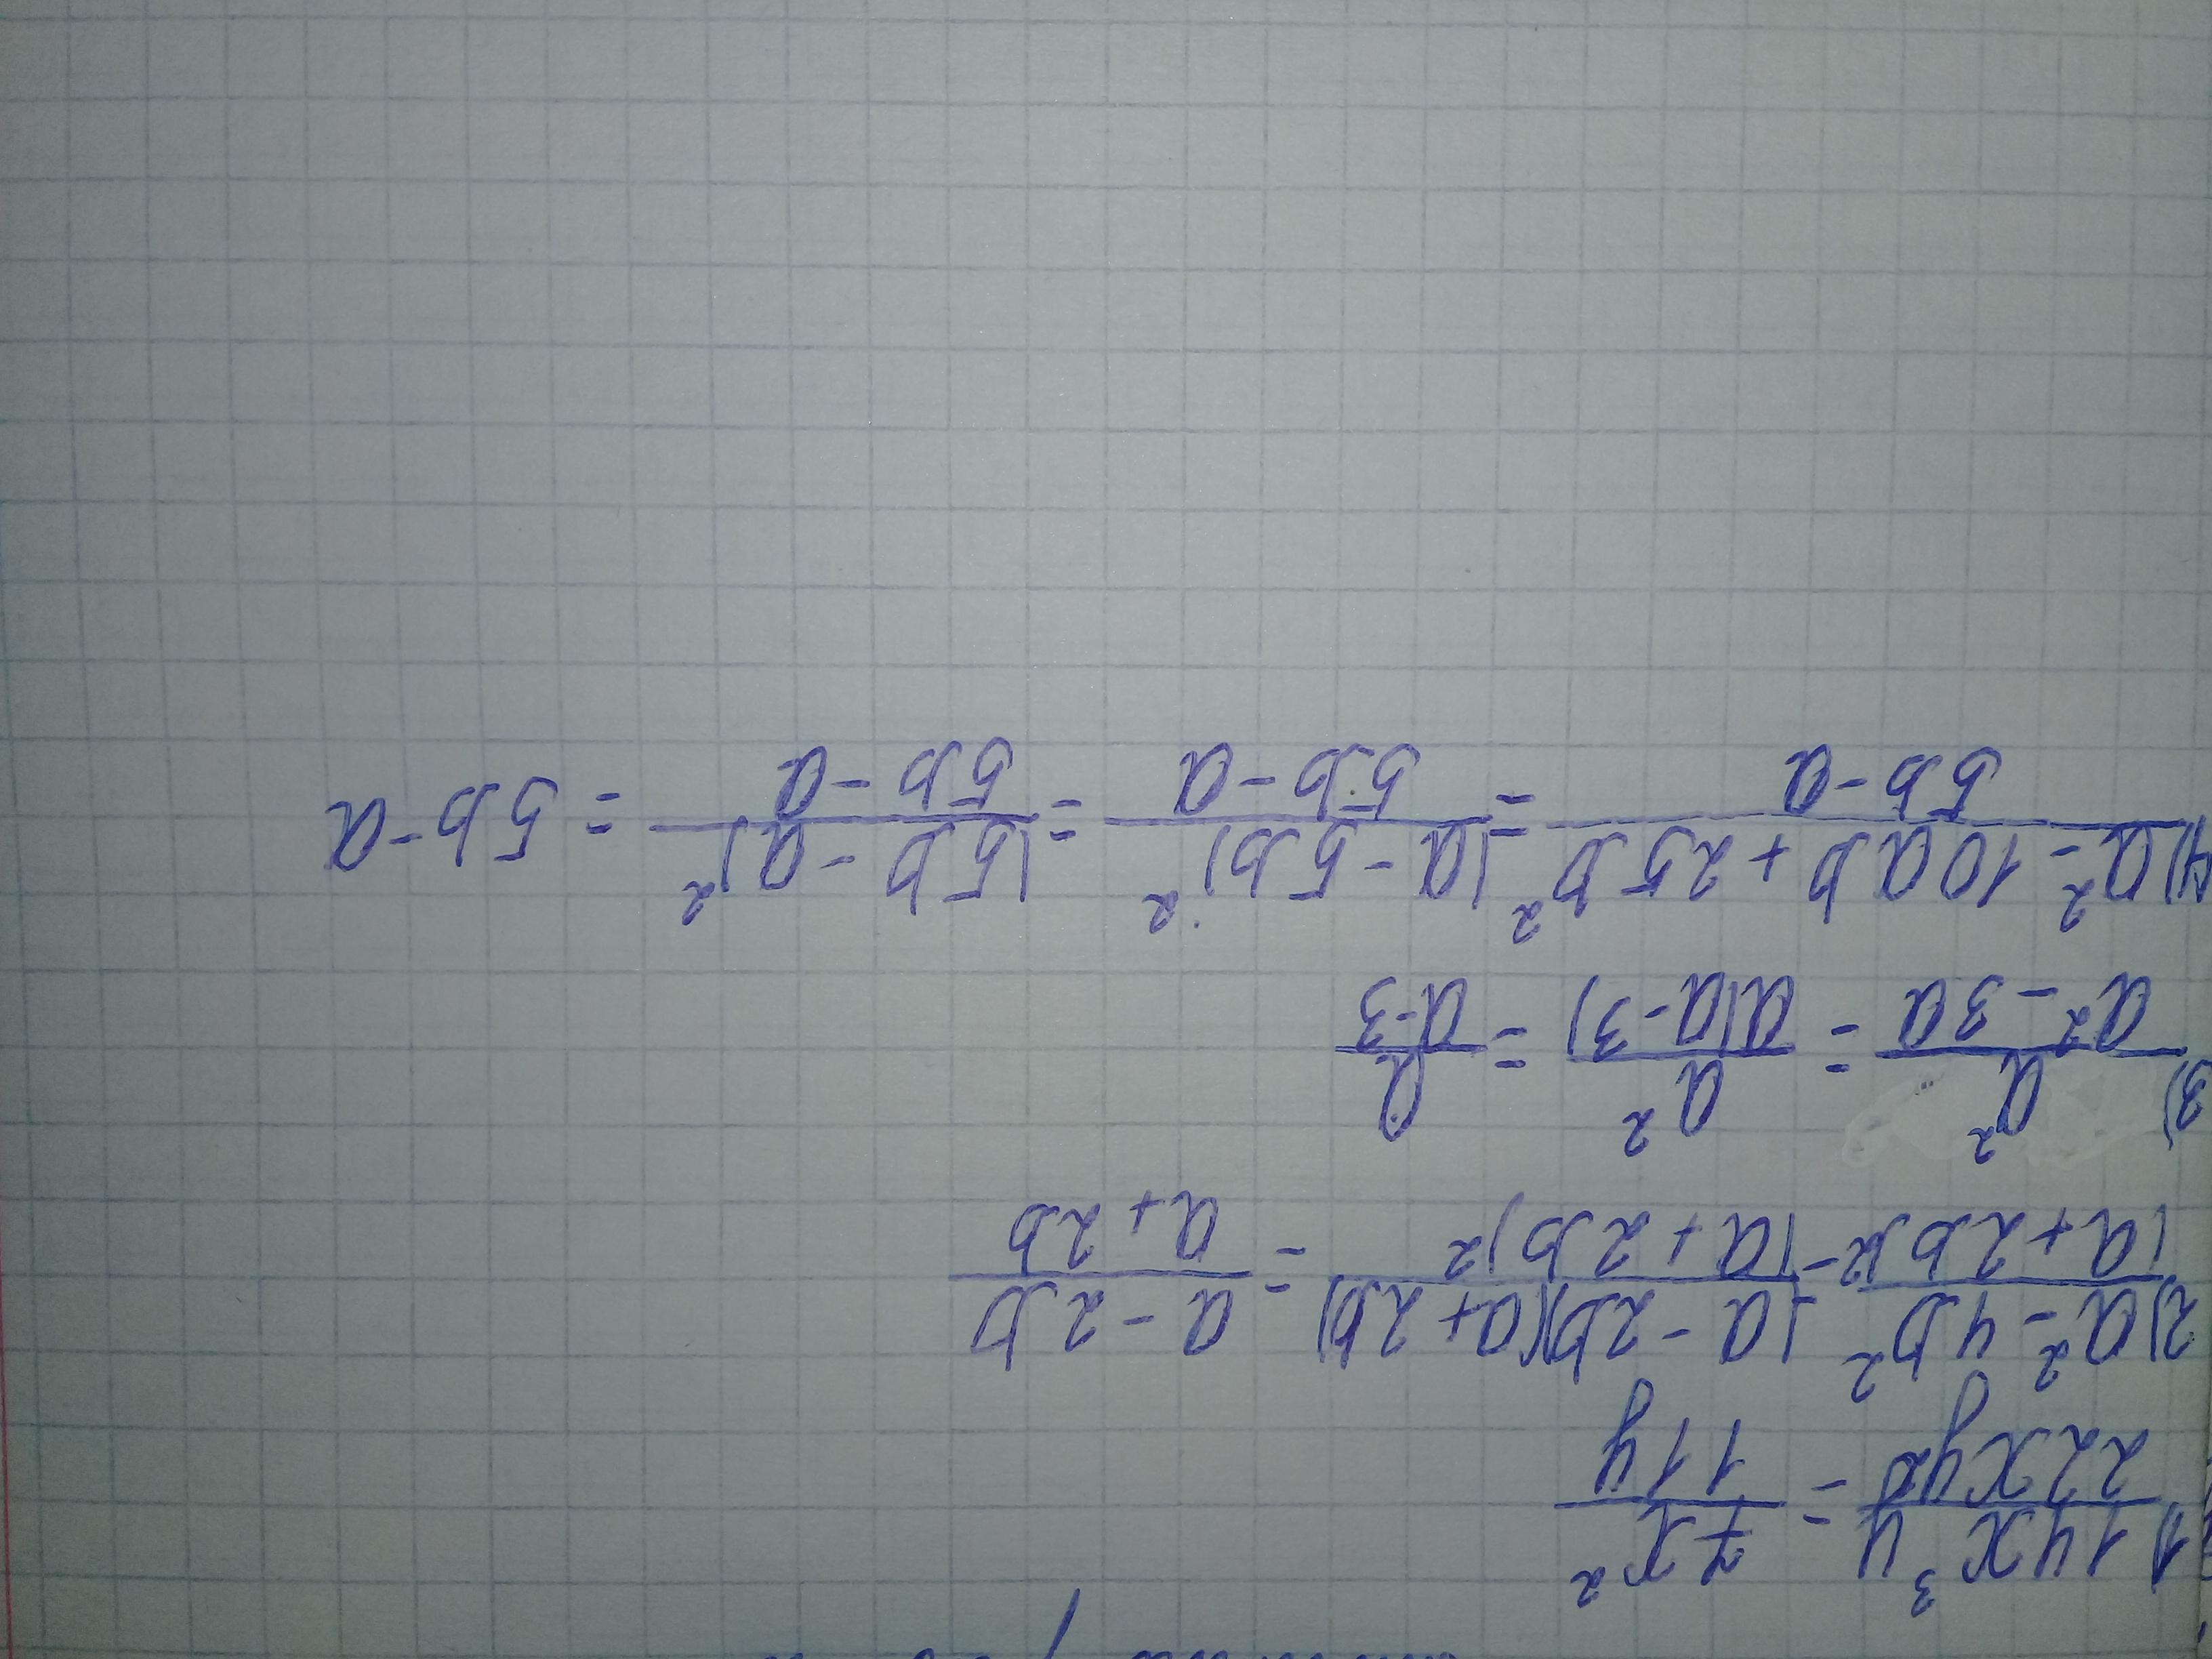 1) 14x³y/22xy² = 7x²/11y
2) a²-4b²/(a+2b)² = (a-2b)(a+2b)/(a+2b)² = a-2b/a+2b
3) a²/a²-3a = a²/a(a-3) = a/a-3
4) a²-10ab+25b²/5b-a = (a-5b)²/5b-a = (5b-a)²/5b-a = 5b-a